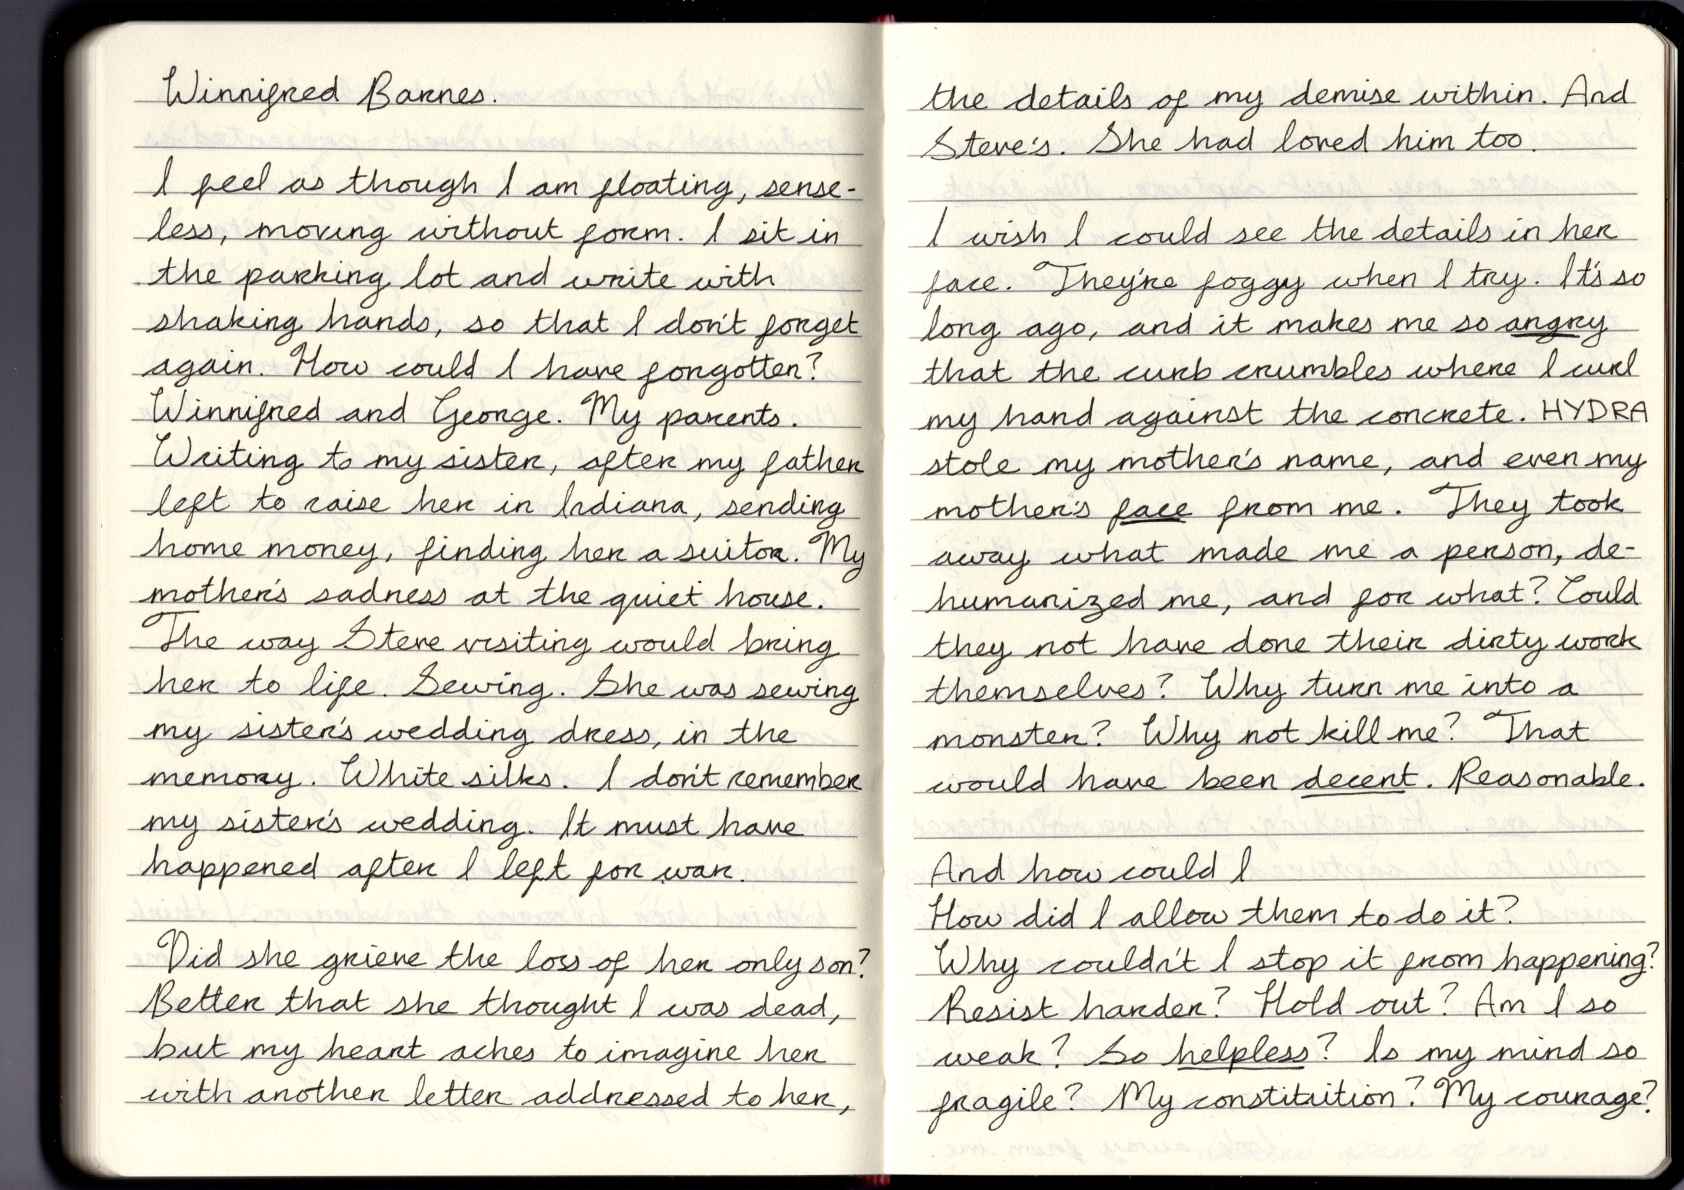 Winnifred Barnes.
I feel as though I am floating, sense-
less, moving without form. I sit in
the parking lot and write with
shaking hands, so that I don't forget
again. How could I have forgotten?
Winnifred and George. My parents.
Writing to my sister, after my father
left to raise her in Indiana, sending
home money, finding her a suitor. My
mother's sadness at the quiet house.
The way Steve visiting would bring
her to life. Sewing. She was sewing
my sister's wedding dress, in the
memory. White silks. I don't remember
my sister's wedding. It must have
happened after I left for war.
Did she grieve the loss of her only son?
Better that she thought I was dead,
but my heart aches to imagine her
with another letter addressed to her,
the details of my demise within. And
Steve's. She had loved him too.
I wish I could see the details in her
face. They're foggy when I try. It's so
long ago, and it makes me so angry
that the curb crumbles where I curl
my hand against the concrete. HYDRA
stole my mother's name, and even my
mother's face from me. They took
away what made me a person, de-
humanized me, and for what? Could
they not have done their dirty work
themselves? Why turn me into a
monster? Why not kill me? That
would have been decent. Reasonable.
And how could I
How did I allow them to do it?
Why couldn't I stop it from happening?
Resist harder? Hold out? Am I so
weak? So helpless? Is my mind so
fragile? My constituition? My courage?